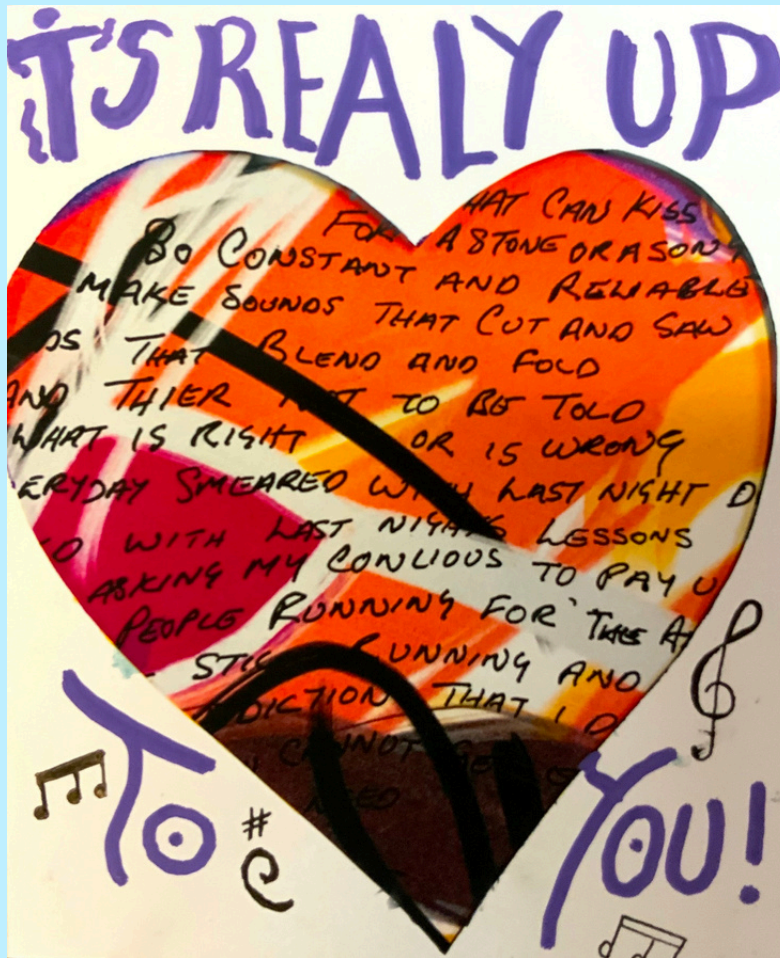 iT'S REALY UP
HAT CAN KISS
FOR A STONE OR A SONG
SO CONSTANT AND RELIABLE
MAKE SOUNDS THAT CUT AND SAW
DS THAT BLEND AND FOLD
AND THIER NOT TO BE TOLD
WHAT IS RIGHT OR IS WRONG
ERYDAY SMEARED WITH LAST NIGHT D
O WITH LAST NIGHTS LESSONS
ASKING MY CONCIOUS TO PAY U
PEOPLE RUNNING FOR THE A
STILL RUNNING AND
DICTION THAT I DO
CANNOT GE
NEED
TO YOU!